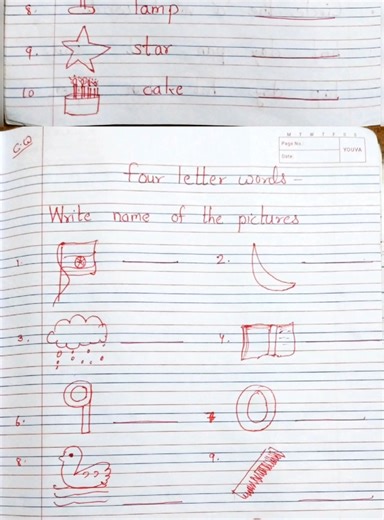 8. lamp
9. star
10 cake
C.Q
M T W T F S S
Page No.:
Date:
YOUVA
four letter words -
Write name of the pictures
1.
2.
3.
4.
9
0
6.
7
8.
9.